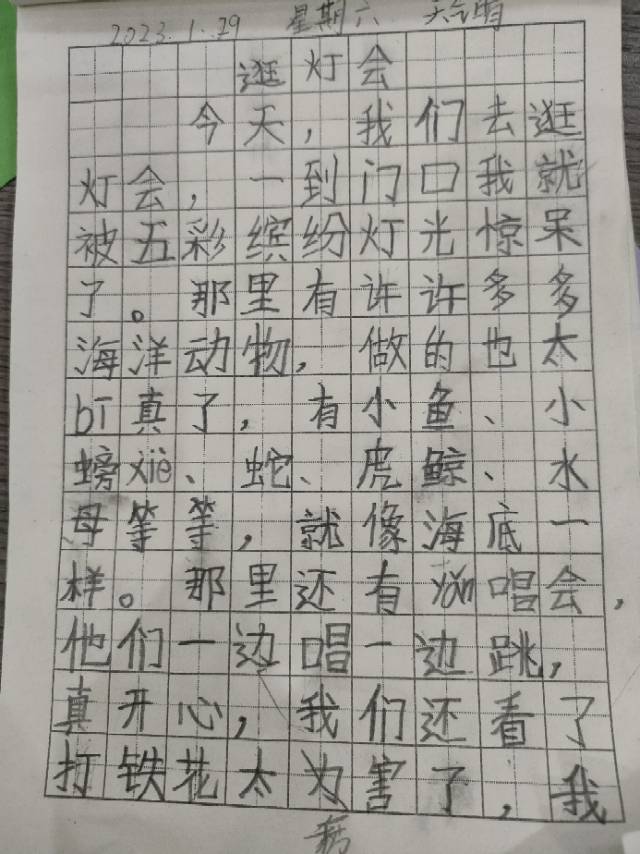 2023.1.29 星期六 天气雨
逛灯会
今天，我们去逛
灯会，一到门口我就
被五彩缤纷灯光惊呆
了。那里有许许多多
海洋动物，做的也太
bī真了，有小鱼、小
螃xiè、蛇、虎鲸、水
母等等，就像海底一
样。那里还有yǎn唱会，
他们一边唱一边跳，
真开心，我们还看了
打铁花太为害了，我